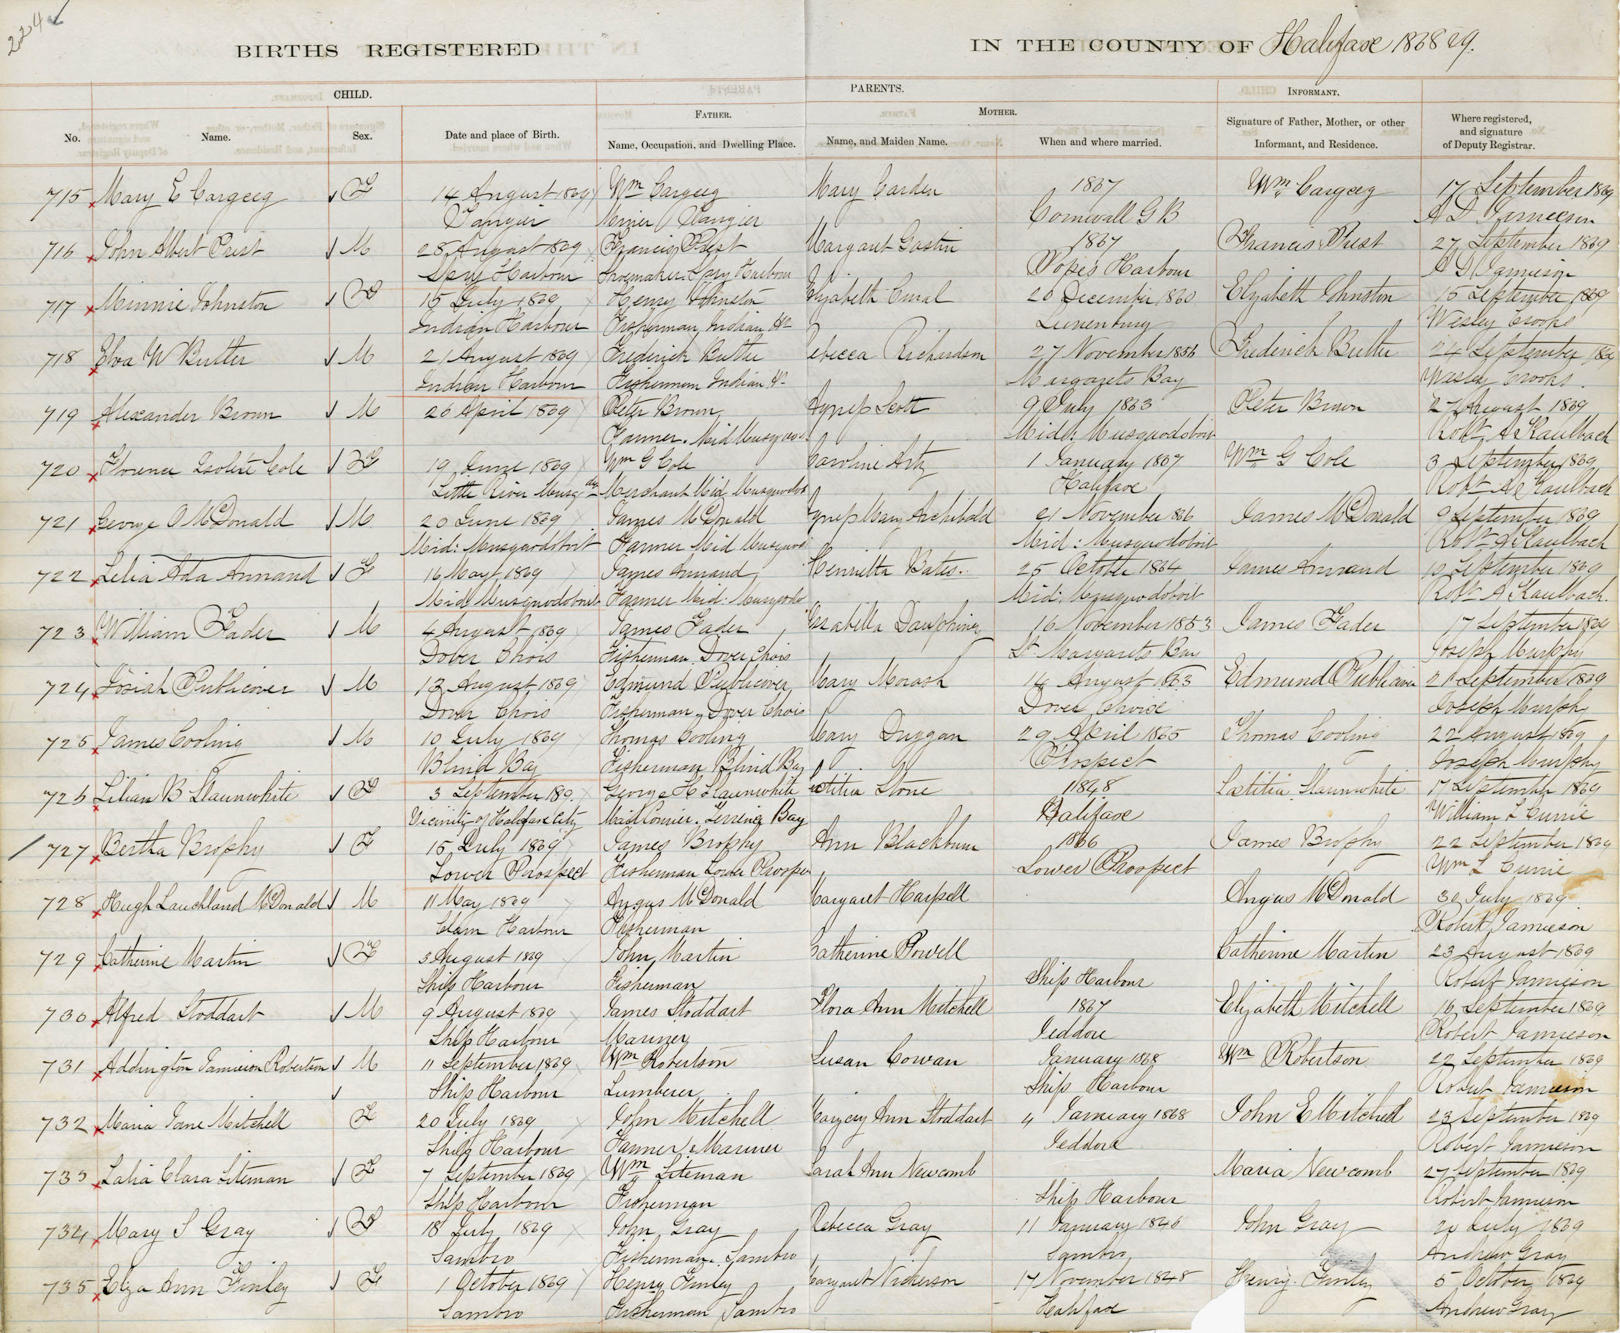 224
BIRTHS REGISTERED IN THE COUNTY OF Halifax 1868 69.
CHILD. PARENTS. INFORMANT.
FATHER. MOTHER.
No. Name. Sex. Date and place of Birth. Name, Occupation, and Dwelling Place. Name, and Maiden Name. When and where married. Signature of Father, Mother, or other Informant, and Residence. Where registered, and signature of Deputy Registrar.
715 Mary E Cargeeg F 14 August 1869 Wm Cargeeg Mary Carden 1867 Wm Cargeeg 17 September 1869
Tangier Miner Tangier Cornwall G B A D Jamieson
716 John Albert Prest M 28 August 1869 Francis Prest Margaret Gastin 1867 Francis Prest 27 September 1869
Spry Harbour Shoemaker Spry Harbour Popes Harbour A D Jamieson
717 Minnie Johnston F 15 July 1869 Henry Johnston Elizabeth 20 December 1860 Elizabeth Johnston 15 September 1869
Indian Harbour Fisherman Indian Hr Lunenburg Wesley Crooks
718 Elva W Butler M 21 August 1869 Frederick Butler Rebecca Richardson 27 November 1856 Frederick Butler 24 September 1869
Indian Harbour Fisherman Indian Hr Margarets Bay Wesley Crooks.
719 Alexander Brown M 26 April 1869 Peter Brown Agness Scott 9 July 1863 Peter Brown 27 August 1869
Farmer. Mid Musquo Mid: Musquodoboit Robt A Kaulback
720 Florence Isolete Cole F 19 June 1869 Wm G Cole Caroline Artz 1 January 1867 Wm G Cole 3 September 1869
Little River Musq Merchant Mid Musquodot Halifax Robt A Kaulback
721 George O McDonald M 20 June 1869 James McDonald Agness Mary Archibald 21 November 1866 James McDonald 9 September 1869
Mid: Musquodoboit Farmer Mid Musquo Mid: Musquodoboit Robt A Kaulback
722 Lelia Ada Annand F 16 May 1869 James Annand Henrietta Bates. 25 October 1864 James Annand 10 September 1869
Mid: Musquodoboit Farmer Mid: Musquodo Mid: Musquodoboit Robt A Kaulback
723 William Fader M 4 August 1869 James Fader Isabella Dauphiney 16 November 1853 James Fader 17 September 1869
Dover Chois Fisherman Dover Chois St Margarets Bay Joseph Murphy
724 Josiah Publicover M 13 August 1869 Edmund Publicover Mary Morash 14 August 1863 Edmund Publicover September 1869
Dover Chois Fisherman, Dover Chois Dover Choice Joseph Murphy
725 James Cooling M 10 July 1869 Thomas Cooling Mary Duggan 29 April 1865 Thomas Cooling 22 August 1869
Blind Bay Fisherman Blind Bay Prospect Joseph Murphy
726 Lilian B Slaunwhite F 3 September 189. George H Slaunwhite Letitia Stone 1848 Letitia Slaunwhite 17 September 1869
Vicinity of Halifax City Mail Courier. Terrence Bay Halifax William L Currie
727 Bertha Brophy F 15 July 1869 James Brophy Ann Blackburn 1866 James Brophy 22 September 1869
Lower Prospect Fisherman Lower Prospec Lower Prospect Wm L Currie
728 Hugh Lauchland McDonald M 11 May 1869 Angus McDonald Margaret Harpell Angus McDonald 30 July 1869
Clam Harbour Fisherman Robert Jamieson
729 Catherine Martin F 3 August 1869 John Martin Catherine Powell Catherine Martin 23 August 1869
Ship Harbour Fisherman Ship Harbour Robert Jamieson
730 Alfred Stoddart M 9 August 1869 James Stoddart Flora Ann Mitchell 1867 Elizabeth Mitchell 16 September 1869
Ship Harbour Mariner Jeddore Robert Jamieson
731 Addington Jamieson Robertson M 11 September 1869 Wm Robertson Susan Cowan January 1868 Wm Robertson 22 September 1869
Ship Harbour Lumberer Ship Harbour Robert Jamieson
732 Maria Jane Mitchell F 20 July 1869 John Mitchell Margery Ann Stoddart 4 January 1868 John E Mitchell 23 September 1869
Ship Harbour Farmer & Mariner Jeddore Robert Jamieson
733 Lalia Clara Siteman F 7 September 1869 Wm Siteman Sarah Ann Newcomb Maria Newcomb 27 September 1869
Ship Harbour Fisherman Ship Harbour Robert Jamieson
734 Mary S Gray F 18 July 1869 John Gray Rebecca Gray 11 January 1846 John Gray 20 July 1869
Sambro Fisherman. Sambro Sambro Andrew Gray
735 Eliza Ann Finley F 1 October 1869 Henry Finley Margaret Nickerson 17 November 1848 Henry Finley 5 October 1869
Sambro Fisherman Sambro Halifax Andrew Gray